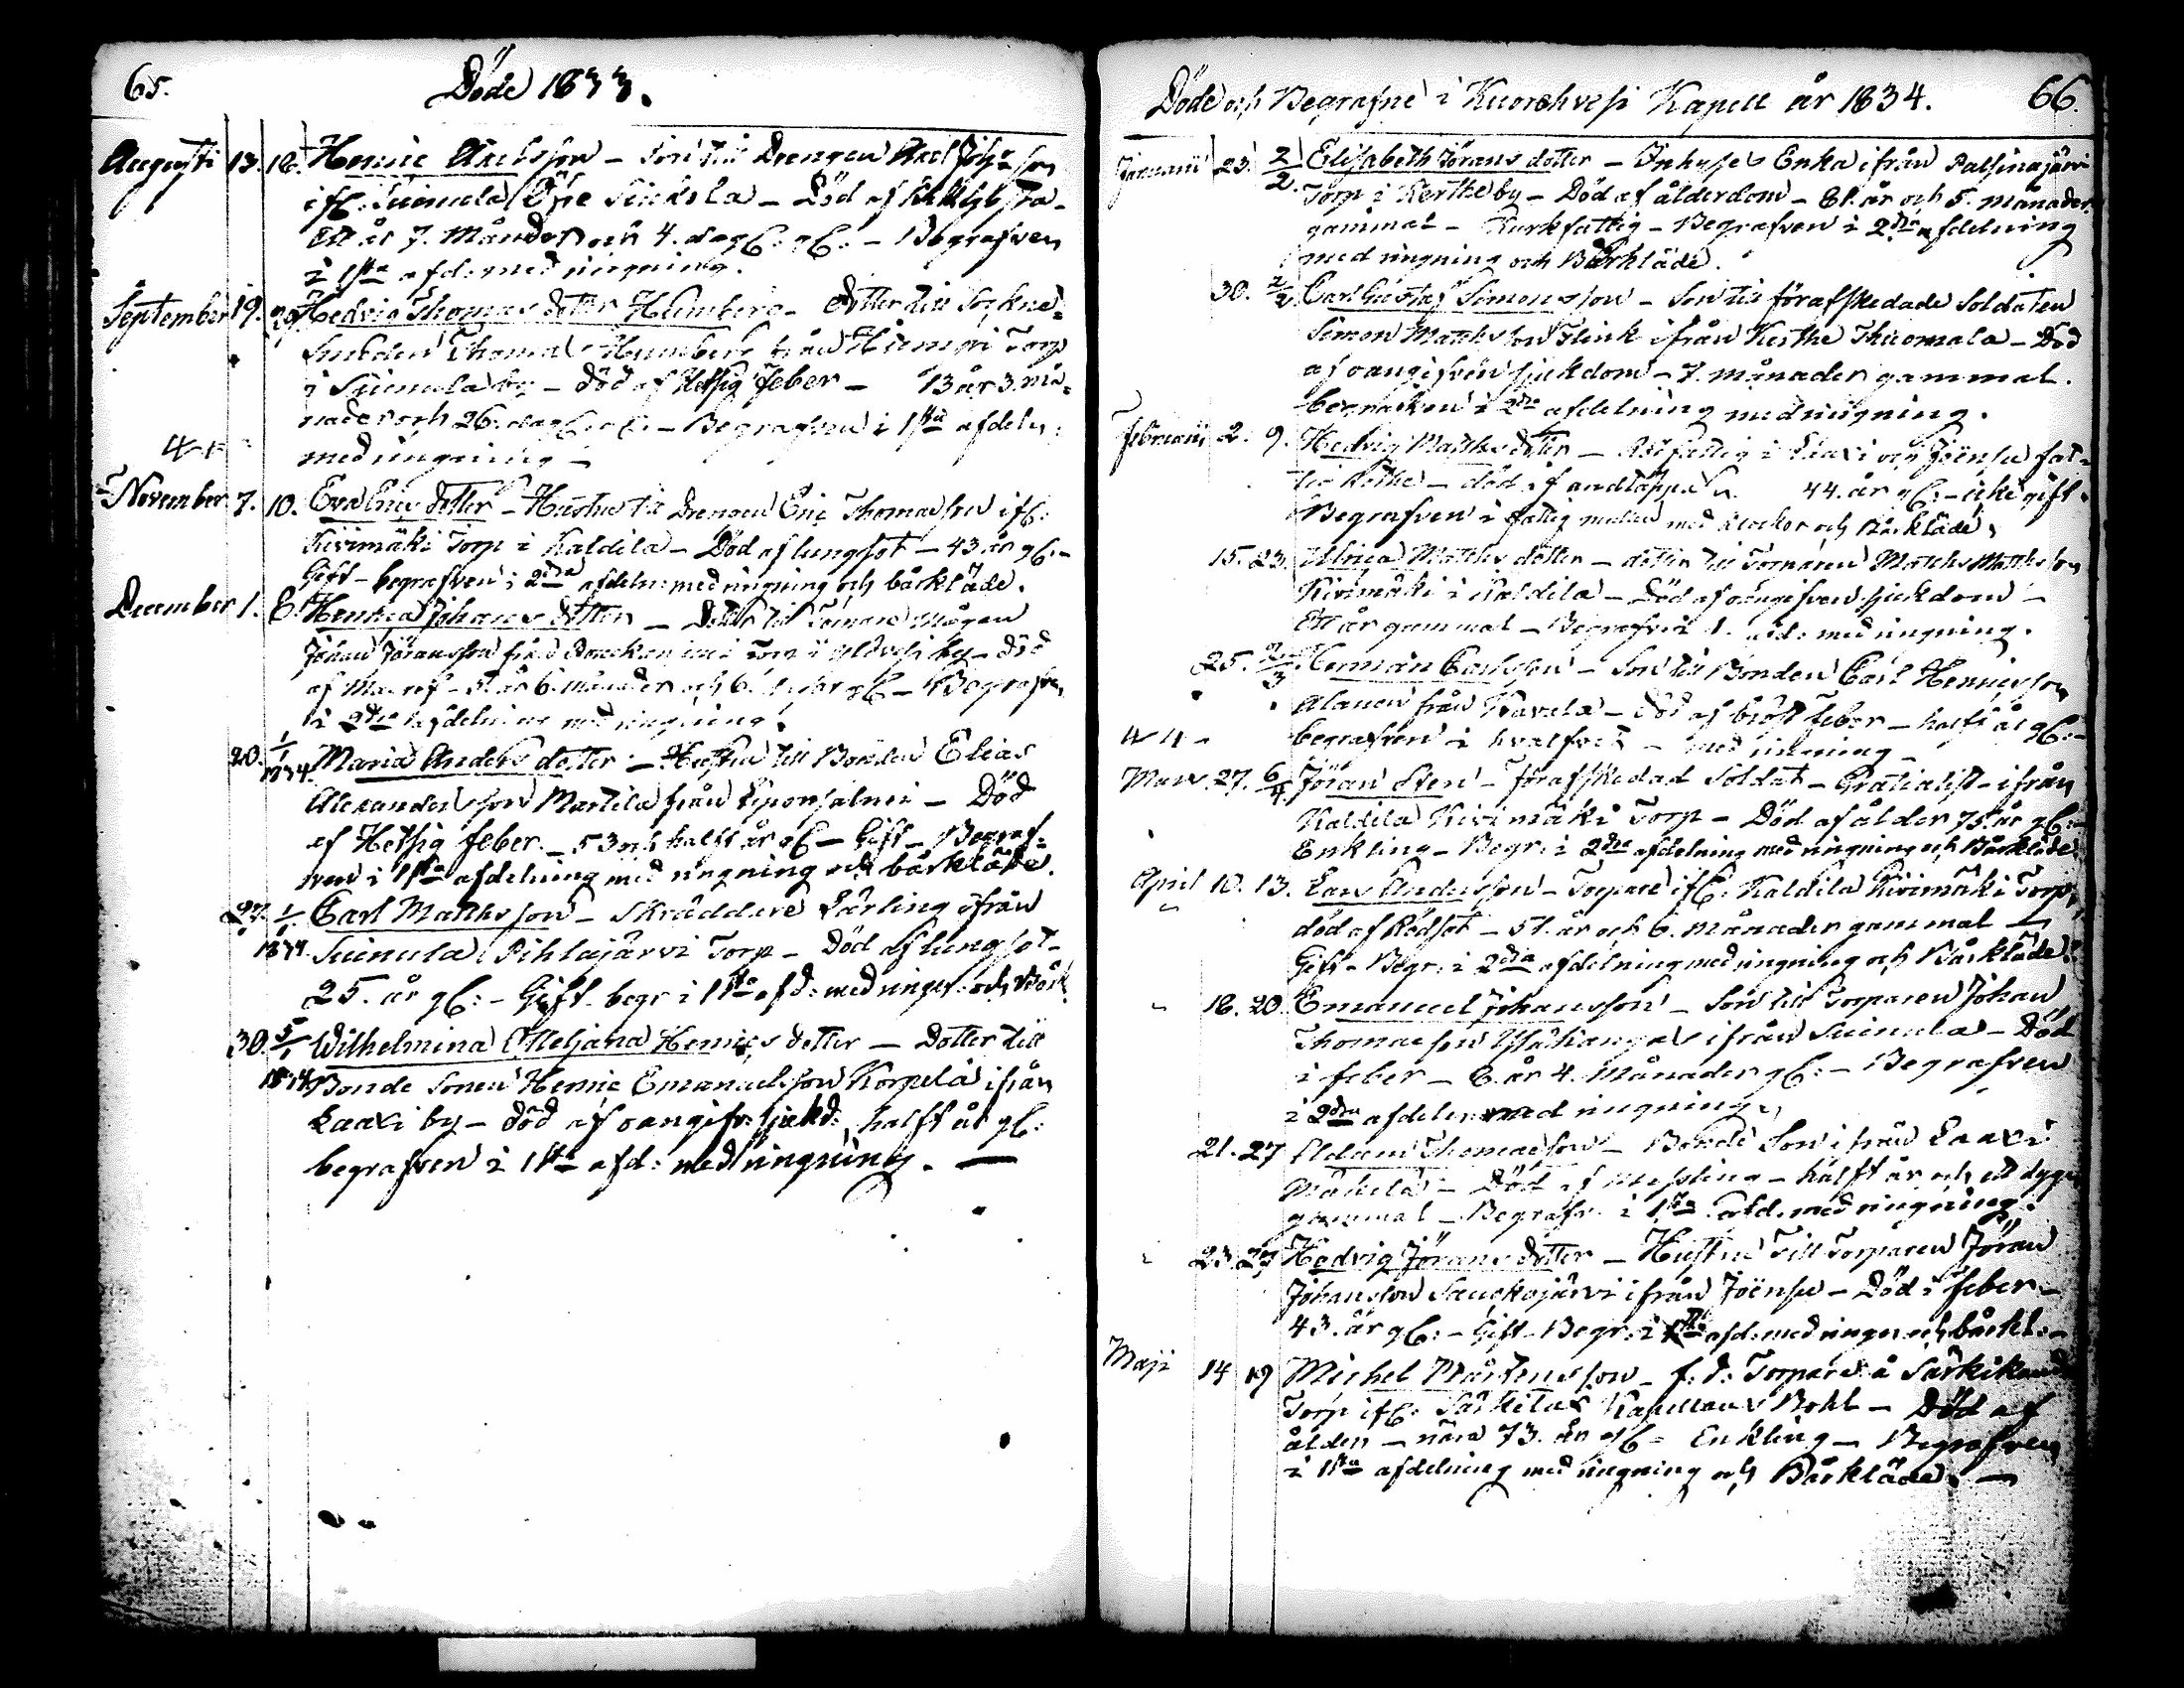 65.
Döde 1833.
Augusti 13. 18. Henric Axelsson – Son till Drengen Axel Joh:s son
ifr: Suinula Öfre Sicksla – Död af
Ett år 7. Månder och 4. dag: gl: – Begrafven
i 1sta afd: med ringning.
September 19. 29 Hedvig Thomas dotter Humberg – dotter till Sockne=
Smeden Thomas Humberg från Torp
i Suinula by – död af Hetsig feber – 13 år 3. må=
nader och 26. dag gl: – Begrafven i 1sta afdeln:
med ringning –
November. 7. 10. Eva Erics dotter – Hustru till Drengen Eric Thomasson ifr:
Kivimäki Torp i Kaldila – Död af lungsot – 43 år gl: –
Gift – begrafven i 2dra afdeln: med ringning och bårkläde.
December 1. 8. Henrica Johans dotter – Dotter till Torpare Mågen
Johan Jöransson från Torp i by – död
af – år 6. månader och 6. gl – Begrafven
i 2dra afdelning med ringning.
20. 1/1 1834. Maria Anders dotter – Hustru till Bonden Elias
Alexandersson Martila från – Död
af Hetsig feber – 53 och halft år gl – Gift – Begraf=
ven i 1sta afdelning med ringning och bårkläde.
27. 1/1 1834. Carl Matthsson – Skräddare Lärling ifrån
Suinula Pihlajärvi Torp – Död af lungsot –
25. år gl: – Gift – begr i 1sta afd: med ringn: och Bårk
30. 5/1 1834 Wilhelmina Meljana Henrics dotter – Dotter till
Bonde Sonen Henric Emanuelsson Korpela ifrån
Laaxi by – död af oangifv: sjukd: halft år gl:
begrafven i 1sta afd: med ringning. –
Döde och Begrafne i Kuorehvesi Kapell år 1834. 66.
Januarii 23. 2/2. Elisabeth Jörans dotter – Inhyses Enka ifrån Palsinajärvi
Torp i Kerthe by – Död af ålderdom – 81. år och 5. månader
gammal – Kurkfattig – Begrafven i 2dra afdelning
med ringning och Bårkläde.
30. 2/2. Carl Gustaf Simonsson – Son till förafskedade Soldaten
Simon Matthsson Flink ifrån Kerthe Thuomala – Död
af oangifven sjukdom – 7. månader gammal.
begrafven i 2dra afdelning med ringning.
Februarii 2. 9. Hedvig Matths dotter – fattig i Laaxi och Joensu fat=
tig Rothe – död af andtäppa 44. år gl: – icke gift.
Begrafven i fattig mullen med klockor och Bårkläde,
15. 23. Ulrica Matths dotter – dotter till Torparen Matths Matthsson
Kivimäki i Kaldila – Död af oangifven sjukdom –
Ett år gammal – Begrafv: i 1. afd: med ringning.
25. 2/3 Herman Carlsson – Son till Bonden Carl Henricsson
Alanen från Pravala – död af bröst feber – halft år gl: –
begrafven i hvalfvet – med ringning –
Mars. 27. 6/4. Jöran Sten – Förafskedad Soldat – Gratialist – ifrån
Kaldila Kivimäki Torp – Död af ålder 75. år gl: –
Enkling – Begr: i 2dra afdelning med ringning och Bårkläde.
April 10. 13. Lars Andersson – Torpare ifr: Kaldila Kivimäki Torp,
död af Rödsot – 51. år och 6. månader gammal –
Gift – Begr. i 2dra afdelning med ringning och Bårkläde.
18. 20. Emanuel Johansson – Son till Torparen Johan
Thomasson ifrån Suinula – Död
i feber – 8. år 4. Månader gl: – Begrafven
i 2dra afdeln: med ringning.
21. 27 Adam Thomasson – Bonde Son ifrån Laaxi
Mäkelä – Död af Messling – halft år och ett dygn
gammal – Begrafv: i 1sta afd. med ringning.
23. 27 Hedvig Jörans dotter – Hustru till Torparen Jöran
Johansson Saukojärvi ifrån Joensu – Död i feber –
43. år gl: – Gift – Begr: i afd: med ringn och bårkl: –
Maji 14 19 Michel Mårtensson – f. d. Torpare å
Torp ifr: Särkilax Kapellans Bohl – Död af
ålder – nära 73. år gl – Enkling – Begrafven
i 1sta afdelning med ringning och Bårkläde. –